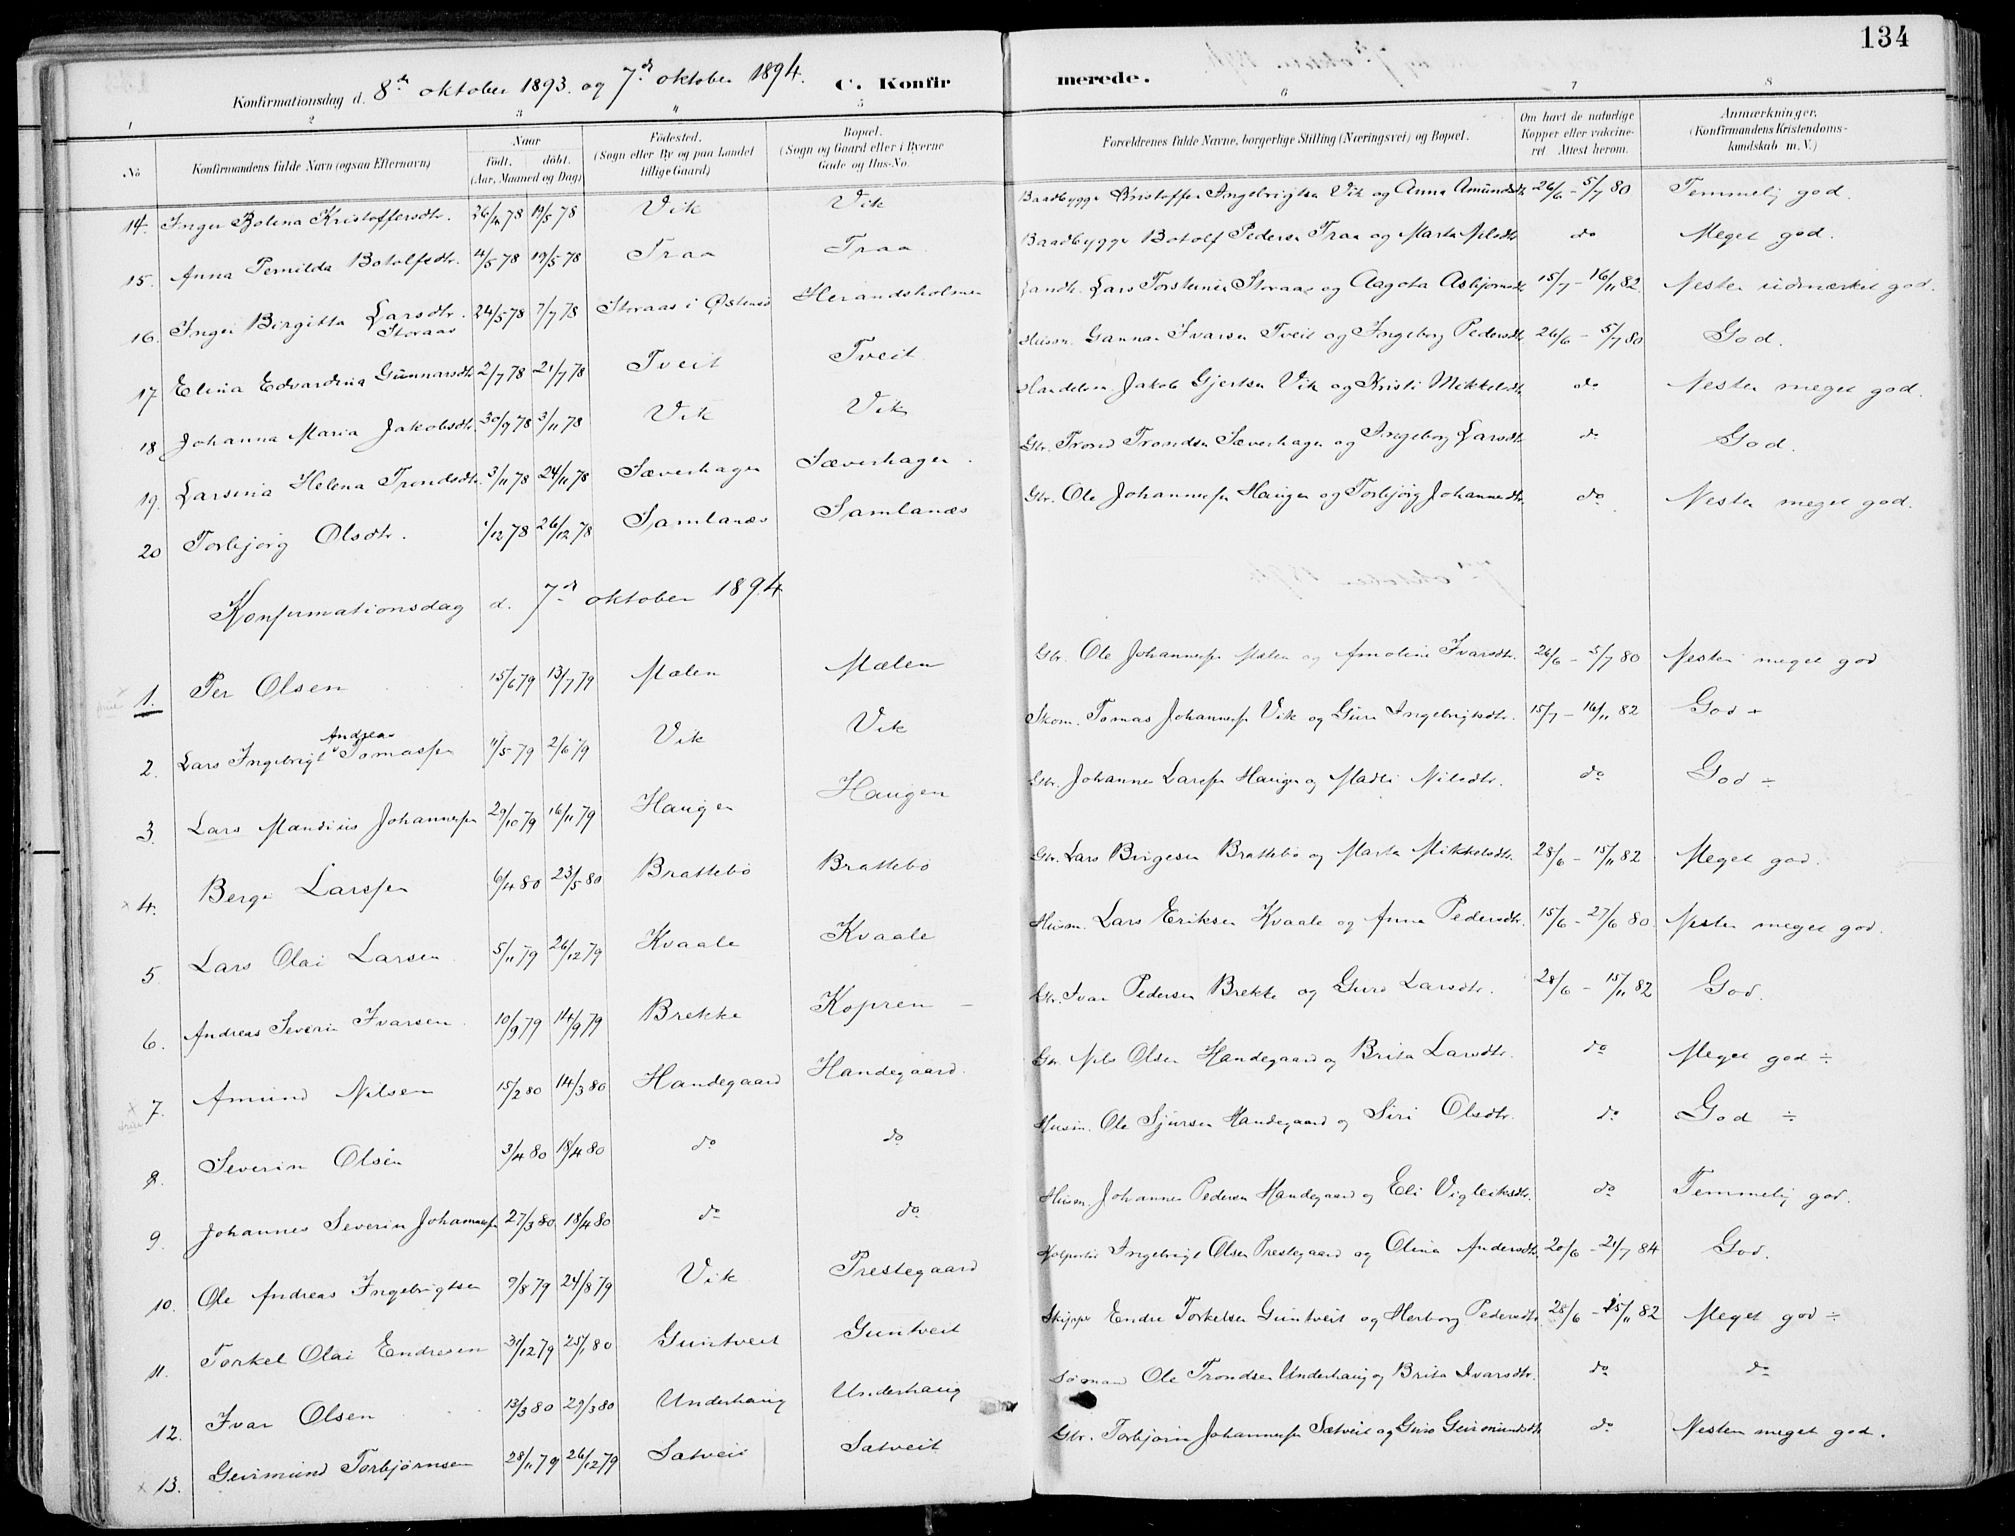 134
Konfirmationsdag d. 8de oktober 1893. og 7de oktober 1894. C. Konfirmerede.
1 2 3 4 5 6 7 8
No Konfirmandens fulde Navn (ogsaa Efternavn) Naar født, døbt. (Aar, Maaned og Dag) Fødested. (Sogn eller By og paa Landet tillige Gaard) Bopæl. (Sogn og Gaard eller i Byerne Gade og Hus-No. Forældrenes fulde Navne, borgerlige Stilling (Næringsvei) og Bopæl. Om havt de naturlige Kopper eller vakcineret. Attest herom. Anmærkninger. (Konfirmandens Kristendomskundskab m. V.)
14. Inger Bolena Kristoffersdtr. 26/4 78 19/5 78 Vik Vik Baadbygge Kristoffer Ingebrigtsen Vik og Anna Amundsdtr 26/6 - 5/7 80 Temmelig god.
15. Anna Pernilda Botolfsdtr. 4/5 78 19/5 78 Traa Traa. Baadbygge Botolf Pedersen Traa og Marta Nilsdtr do Meget god.
16. Inger Birgitta Larsdtr. Storaas 24/5 78 7/7 78 Storaas i Østensø Herandsholmen Landh. Lars Torsteinsen Storaas og Aagota Asbjørnsdtr 15/7 - 16/11 82. Nesten udmærket god.
17 Elina Edvardina Gunnarsdtr 2/7 78 21/7 78 Tveit Tveit. Husm. Gunnar Ivarsen Tveit og Ingeborg Pedersdtr 26/6 - 5/7 80 God.
18 Johanna Maria Jakobsdtr. 30/9 78 3/11 78 Vik Vik Handelsm. Jakob Gjertsen Vik og Kristi Mikkelsdtr do Nesten meget god.
19. Larsina Helena Trondsdtr. 3/11 78 24/11 78 Sæverhagen Sæverhagen. Gbr. Trond Trondsen Sæverhagen og Ingeborg Larsdtr do God.
20 Torbjørg Olsdtr. 1/12 78 26/12 78 Samlanæs Samlanæs Gbr. Ole Johannesen Haugen og Torbjørg Johannesdtr. do Nesten meget god.
Konfirmationsdag d. 7de oktober 1894
1. Per Olsen 15/6 79 13/7 79 Mælen Mælen Gbr. Ole Johannessen Mælen og Amolina Ivarsdtr. 26/6 - 5/7 80 Nesten meget god
2. Lars Ingebrigt Andreas Tomassen 11/5 79 2/6 79 Vik Vik Skom. Tomas Johannessen Vik og Guro Ingebrigtsdtr. 15/7 - 16/11 82 God +
3 Lars Mandius Johannessen 29/10 79 16/11 79 Haugen Haugen Gbr. Johannes Larssen Haugen og Madli Nilsdtr. do God ÷
x 4. Berge Larssen 6/4 80 23/5 80 Brattebø Brattebø Gbr. Lars Birgesen Brattebø og Marta Mikkelsdtr. 28/6 - 15/11 82 Meget god.
5 Lars Olai Larsen. 5/11 79 26/12 79 Kvaale Kvaale Husm. Lars Eriksen Kvaale og Anna Pedersdtr. 15/6 - 27/6 80. Nesten meget god.
6. Andreas Severin Ivarsen. 10/9 79 14/9 79 Brekke Kopren - Gbr. Ivar Pedersen Brekke og Guro Larsdtr. 28/6 - 15/11 82 God.
x 7. Amund Nilsen 15/2 80 14/3 80 Handegaard Handegaard. Gbr Nils Olsen Handegaard og Brita Larsdtr. do Meget god ÷
8. Severin Olsen 3/4 80 18/4 80 do do Husm. Ole Sjursen Handegaard og Siri Olsdtr. do God ÷
9. Johannes Severin Johannessen 27/3 80 18/4 80 do do Husm. Johannes Pedersen Handegaard og Eli Vigleiksdtr. do Temmelig god.
10. Ole Andreas Ingebrigtsen 9/8 79 24/8 79 Vik Prestegaard Kolportør Ingebrigt Olsen Prestegaard og Olina Andersdtr. 20/6 - 21/7 84 God.
11. Torkel Olai Endresen 31/12 79 25/1 80 Guntveit Guntveit Skipper Endre Torkelsen Guntveit og Herborg Pedersdtr 28/6 - 15/11 82 Meget god ÷
12. Ivar Olsen 13/3 80 29/3 80 Underhaug Underhaug Sømand Ole Trondsen Underhaug og Brita Ivarsdtr. do do
x 13. Geirmund Torbjørnsen 28/11 79 26/12 79 Sætveit Sætveit Gbr. Torbjørn Johannessen Sætveit og Guro Geirmundsdtr do Nesten meget god.